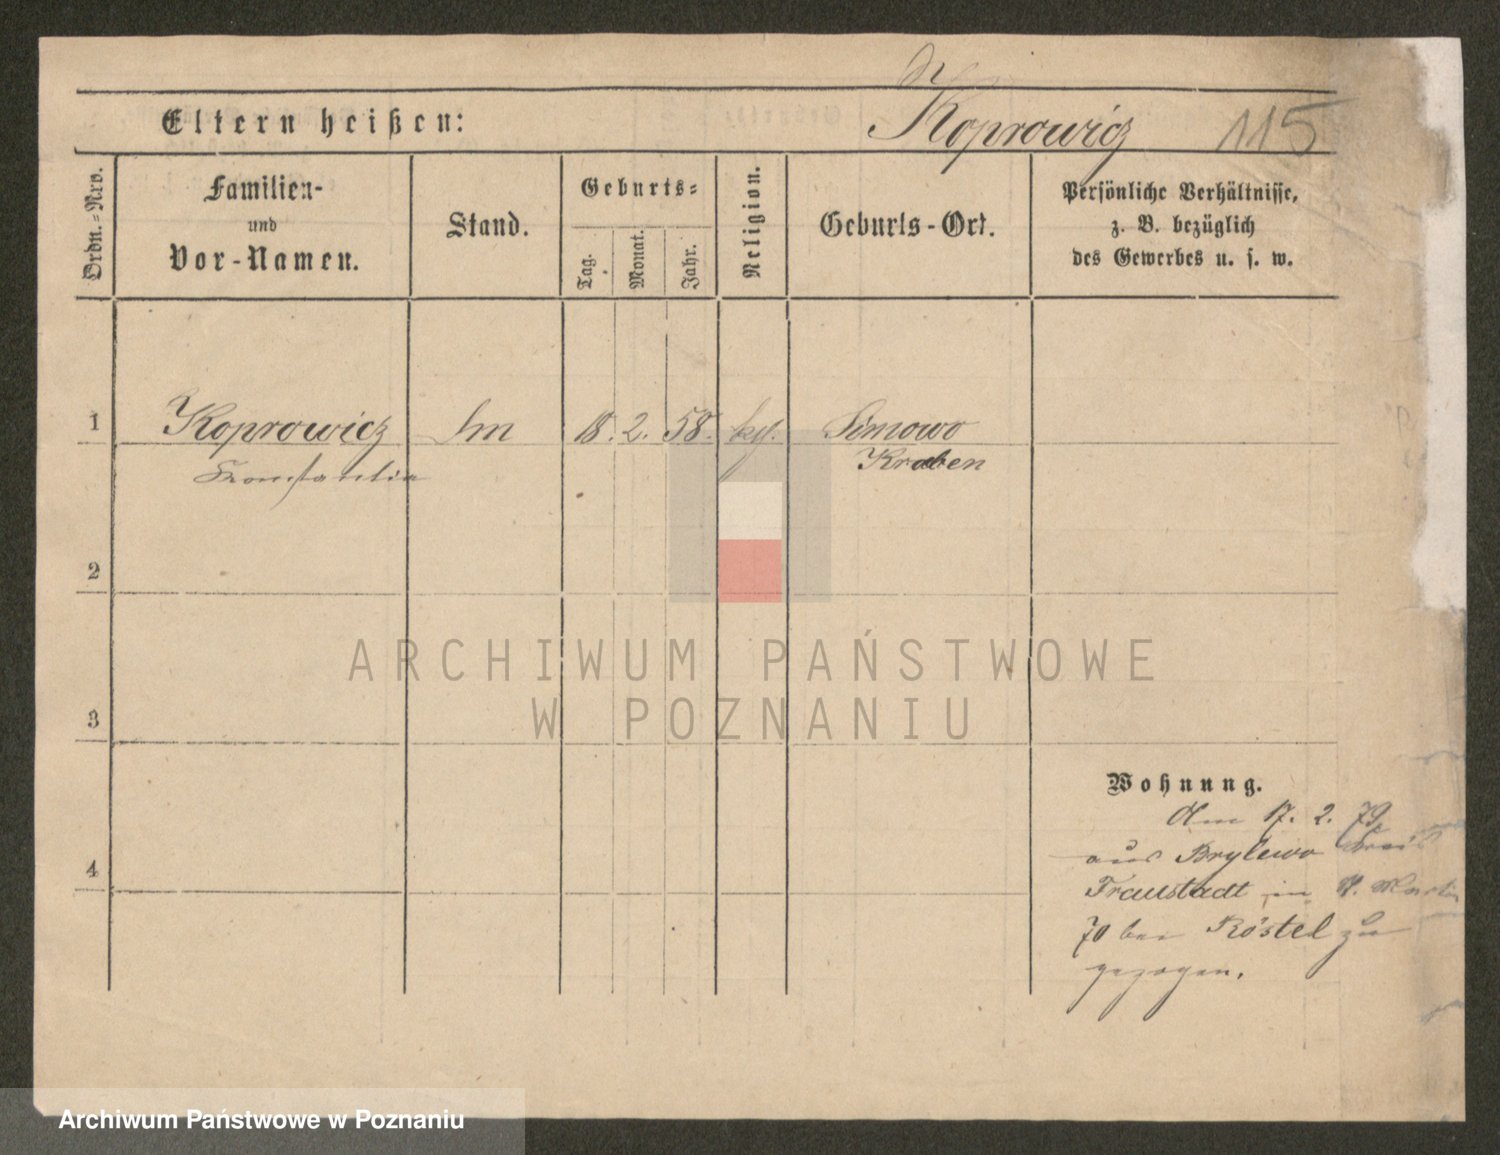 Koprowicz 115
Eltern heißen:
Ordn.=Nro.
Familien-
und
Vor-Namen.
Stand.
Geburts=
Tag.
Monat.
Jahr.
Religion.
Geburts-Ort.
Persönliche Verhältnisse,
z. B. bezüglich
des Gewerbes u. s. w.
1 Koprowicz 18. 2. 58. Simowo
Konstantia Kroben
2
3
4
Wohnung.
Am 17. 2. 79
aus Brylewo Kreis
Fraustadt in St. Martin
70 bei Röstel zu
gezogen.
ARCHIWUM PAŃSTWOWE
W POZNANIU
Archiwum Państwowe w Poznaniu